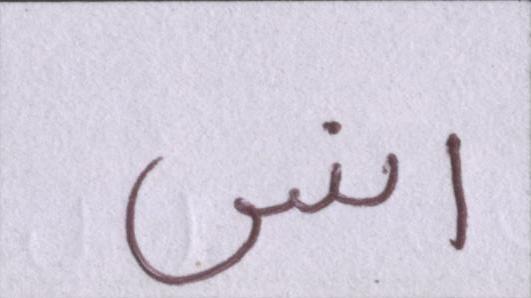 انس